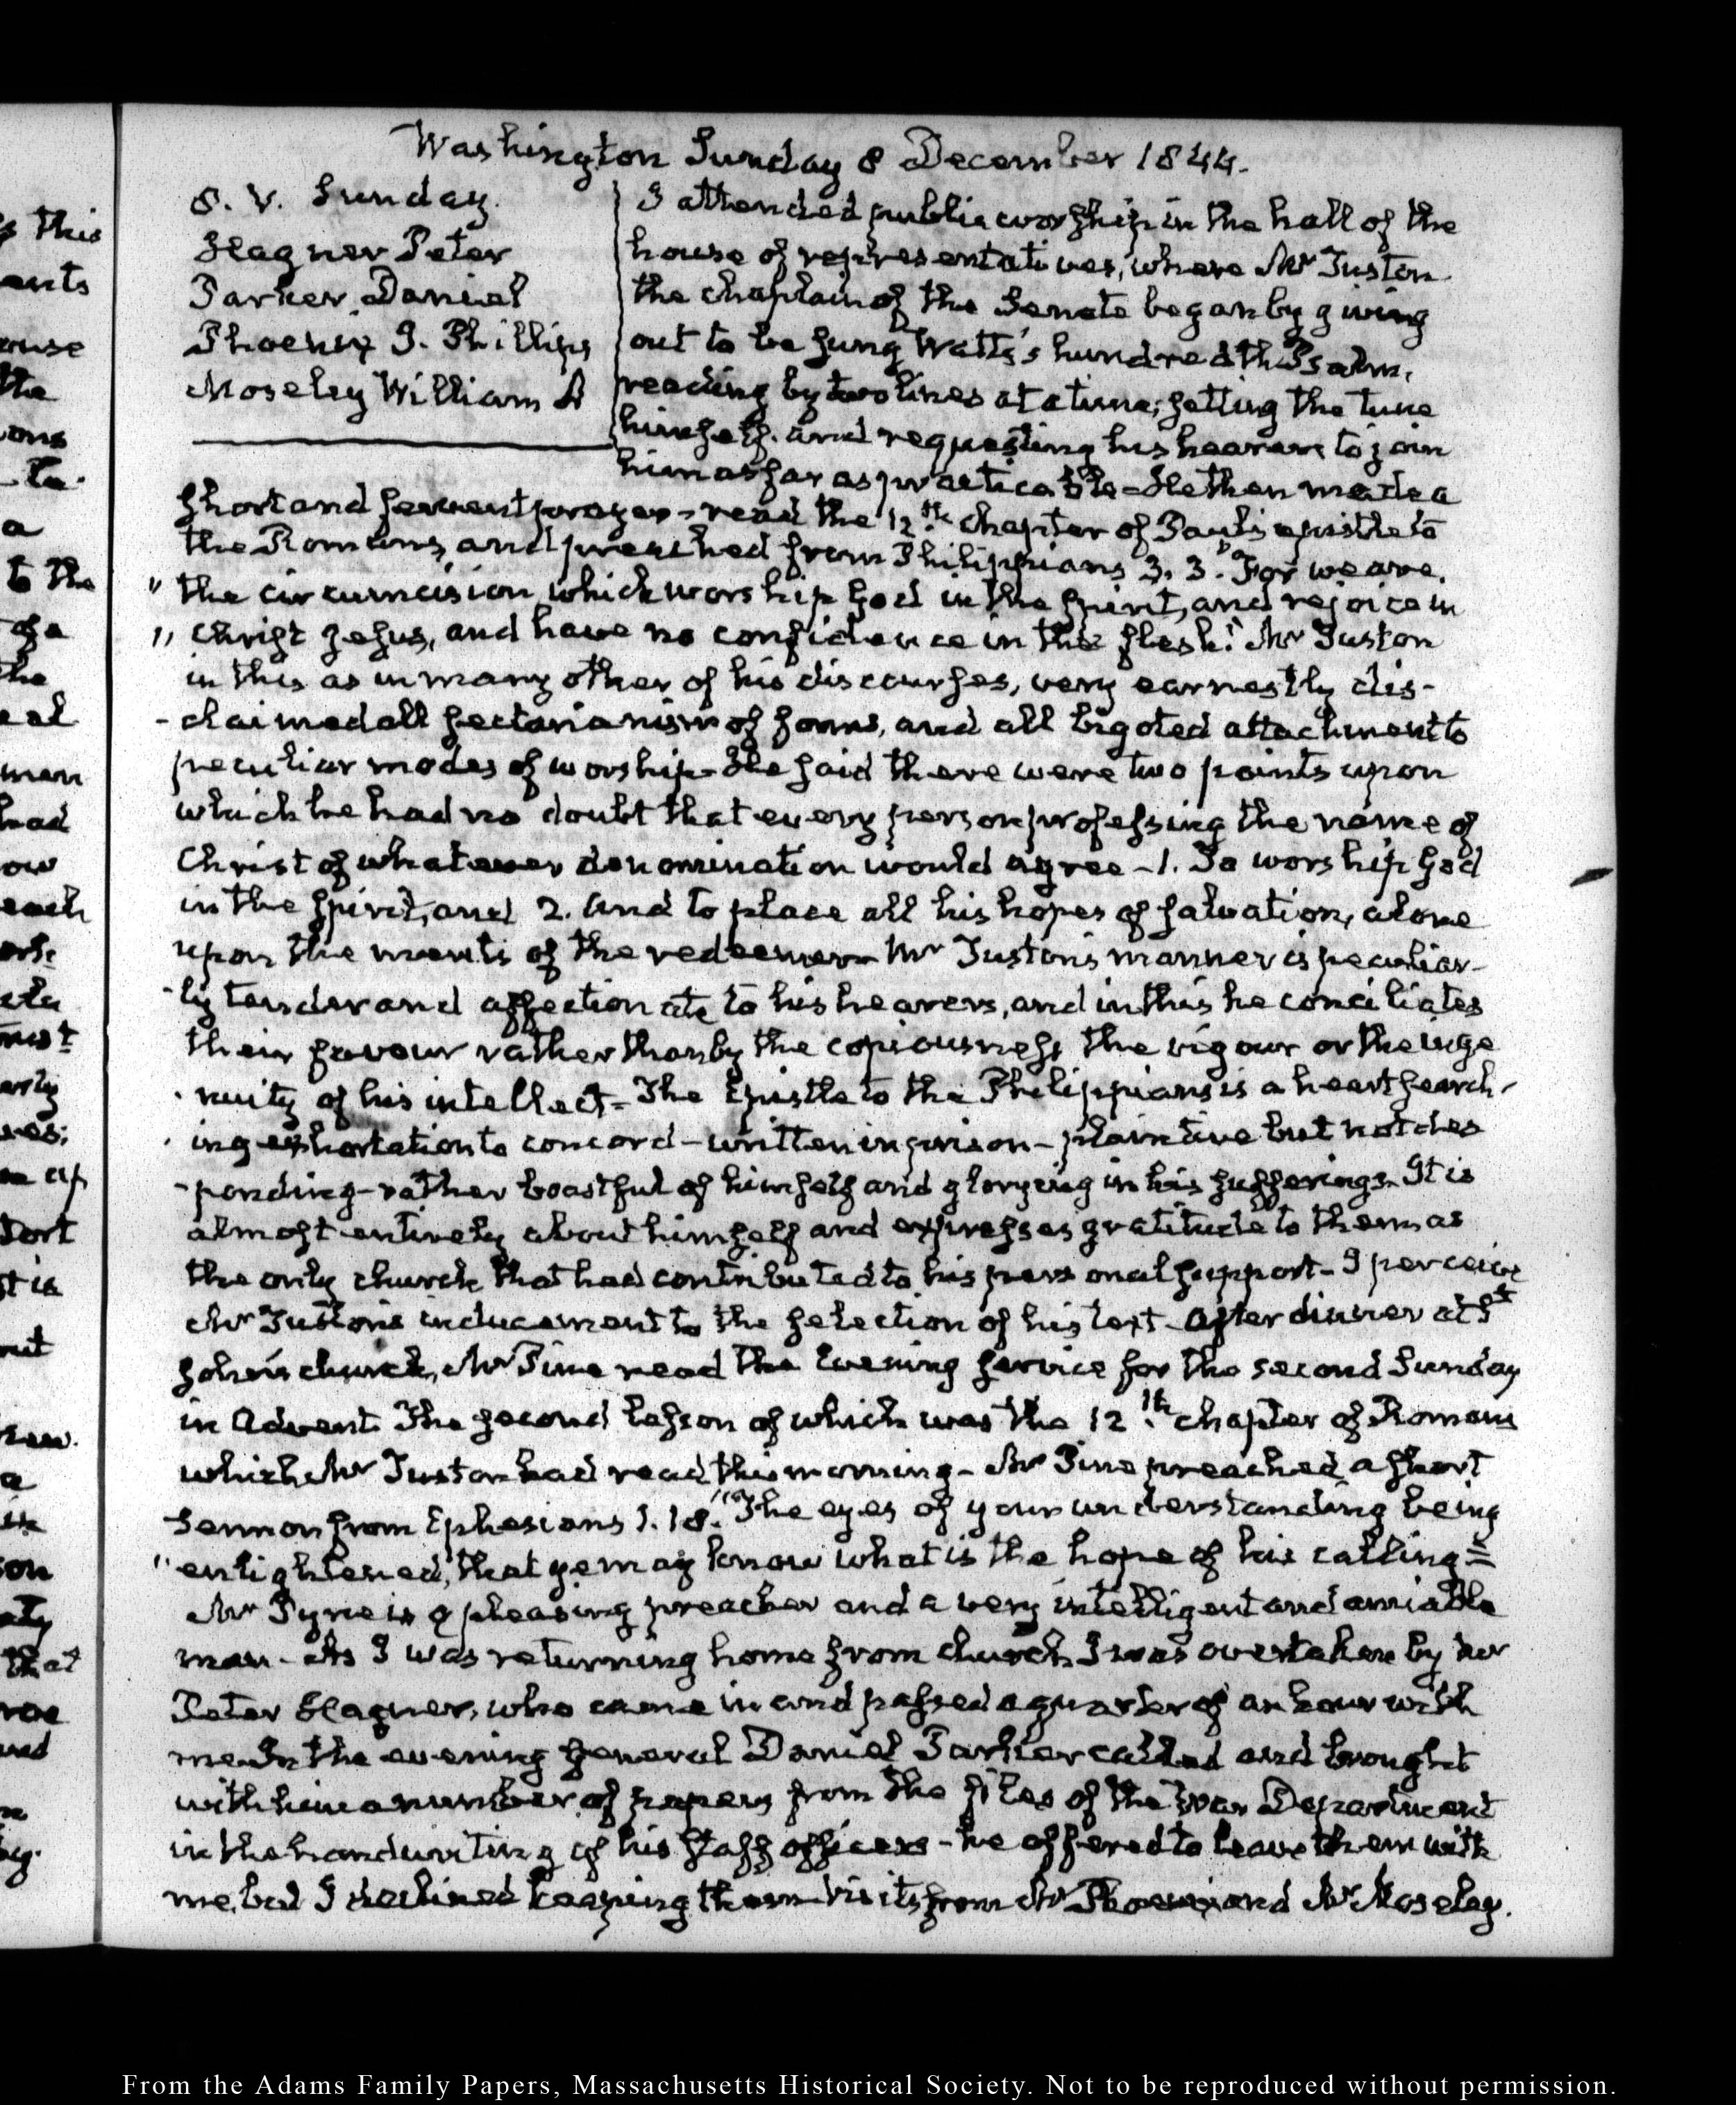 Washington Sunday 8 December 1844.
8. V. Sunday.
Hagner Peter
Parker, Daniel
Phoenix J. Phillips
Moseley William A
I attended public worship in the hall of the
house of representatives, where Mr Tuston
the chaplain of the Senate began by giving
out to be sung Watts's hundredth Psalm,
reading by two lines at a time, setting the tune
himself. and requesting his hearers to join
him as far as practicable - He then made a
short and fervent prayer - read the 12th. chapter of Paul's epistle to
the Romans, and preached from Philippians 3. 3. "For we are.
" the circumcision which worship God in the spirit, and rejoice in
" Christ Jesus, and have no confidence in the flesh." Mr Tuston
in this as in many other of his discourses, very earnestly dis-
-claimed all sectarianism of forms, and all bigoted attachment to
peculiar modes of worship - He said there were two points upon
which he had no doubt that every person professing the name of
Christ of whatever denomination would agree - 1. To worship God
in the spirit, and 2. And to place all his hopes of salvation, alone
upon the merits of the redeemer - Mr Tuston's manner is peculiar-
-ly tender and affectionate to his hearers, and in this he conciliates
their favour rather than by the copiousness, the vigour or the inge
-nuity of his intellect - The Epistle to the Philippians is a heart search-
-ing exhortation to concord - written in prison - plaintive but not des
-ponding - rather boastful of himself and glorying in his sufferings. It is
almost entirely about himself and expresses gratitude to them as
the only church that had contributed to his personal support - I perceive
Mr Tuston's inducement to the selection of his text - After dinner at St
John's church, Mr Pine read the Evening service for the second Sunday
in Advent. The second lesson of which was the 12th. chapter of Romans
which Mr Tuston had read this morning - Mr Pine preached a short
sermon from Ephesians 1. 18. "The eyes of your understanding being
" enlightened, that ye may know what is the hope of his calling" -
Mr Pyne is a pleasing preacher and a very intelligent and amiable
man - As I was returning home from church I was overtaken by Mr
Peter Hagner, who came in and passed a quarter of an hour with
me. In the evening General Daniel Parker called and brought
with him a number of papers from the files of the War Department
in the handwriting of his staff officers - he offered to leave them with
me, but I declined keeping them - Visits from Mr Phoenix and Mr Moseley.
From the Adams Family Papers, Massachusetts Historical Society. Not to be reproduced without permission.